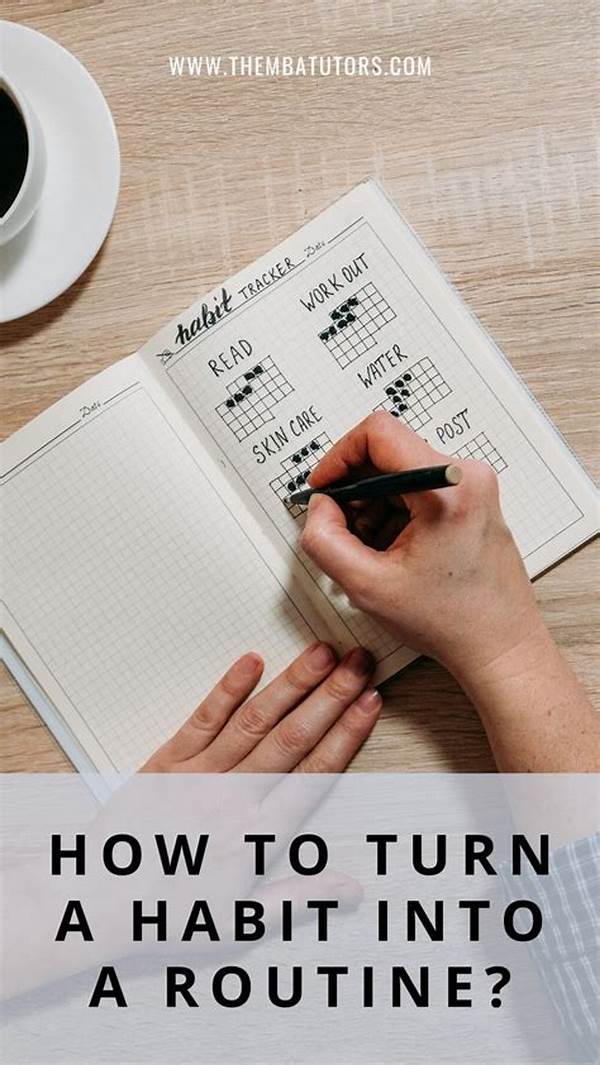 WWW.THEMBATUTORS.COM
habit TRACKER Date
READ
WORK OUT
SKIN CARE
WATER
POST
Date
HOW TO TURN
A HABIT INTO
A ROUTINE?